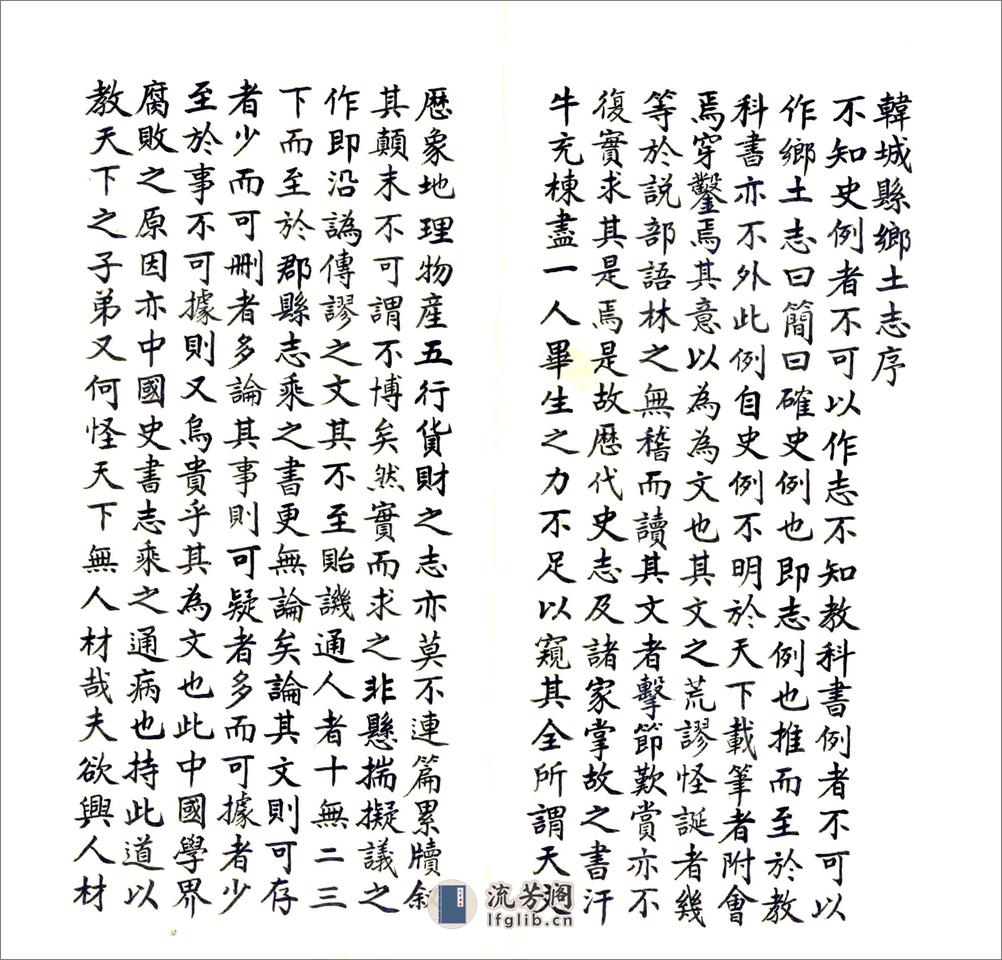 韓城縣鄉土志序
不知史例者不可以作志不知教科書例者不可以
作鄉土志曰簡曰確史例也即志例也推而至於教
科書亦不外此例自史例不明於天下載筆者附會
焉穿鑿焉其意以為為文也其文之荒謬怪誕者幾
等於說部語林之無稽而讀其文者擊節歎賞亦不
復實求其是焉是故厯代史志及諸家掌故之書汗
牛充棟盡一人畢生之力不足以窺其全所謂天
厯象地理物產五行貨財之志亦莫不連篇累牘叙
其顛末不可謂不博矣然實而求之非懸揣擬議之
作即沿譌傳謬之文其不至貽譏通人者十無二三
下而至於郡縣志乘之書更無論矣論其文則可存
者少而可刪者多論其事則可疑者多而可據者少
至於事不可據則又烏貴乎其為文也此中國學界
腐敗之原因亦中國史書志乘之通病也持此道以
教天下之子弟又何怪天下無人材哉夫欲興人材
流芳阁
lfglib.cn